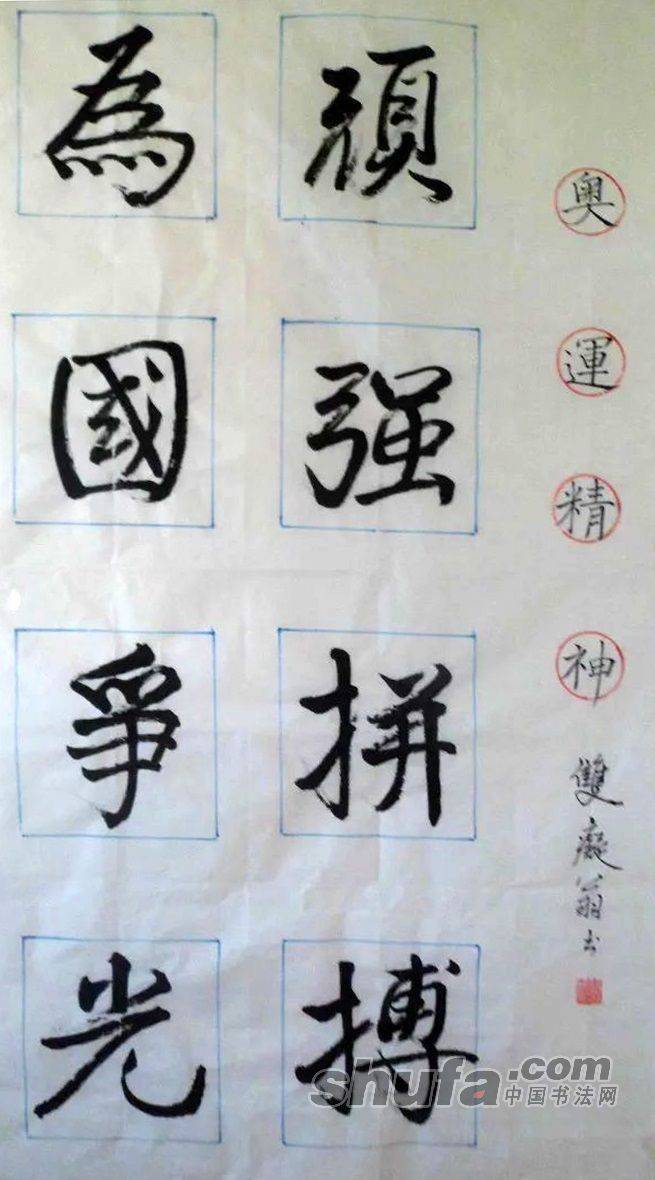 奥運精神 雙癡翁书
頑强拼搏
為國爭光
shufa.com
中国书法网